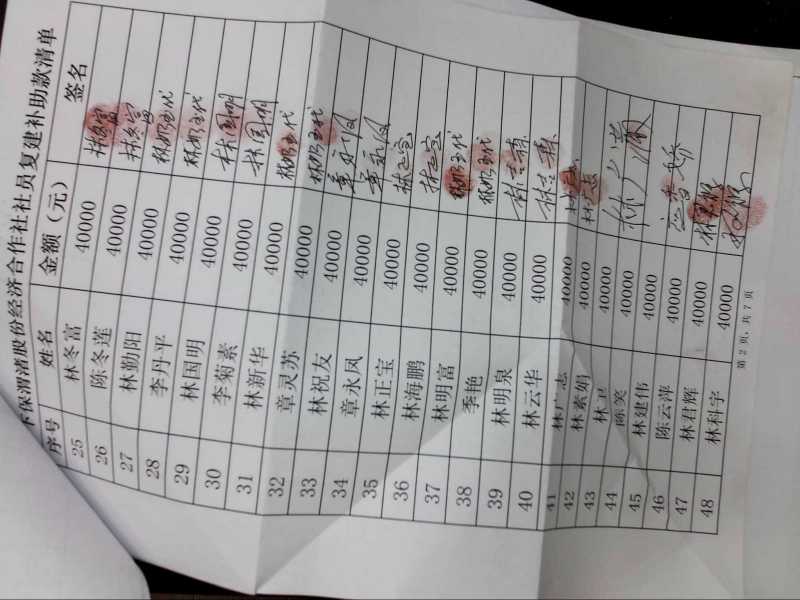 下保渭渚股份经济合作社社员复建补助款清单
序号 姓名 金额（元） 签名
25 林冬富 40000 林冬富
26 陈冬莲 40000 林冬富
27 林勤阳 40000 林奶玉代
28 李丹平 40000 林奶玉代
29 林国明 40000 林国明
30 李菊素 40000 林国明
31 林新华 40000 林奶玉代
32 章灵苏 40000 林奶玉代
33 林祝友 40000
34 章永凤 40000 章永凤
35 林正宝 40000 林正宝
36 林海鹏 40000 林正宝
37 林明富 40000 林奶玉代
38 季艳 40000 林奶玉代
39 林明泉 40000
40 林云华 40000
41 林广志 40000
42 林素娟 40000
43 林卫 40000
44 陈笑 40000
45 林建伟 40000
46 陈云萍 40000
47 林君辉 40000
48 林科宇 40000
第 2 页，共 7 页